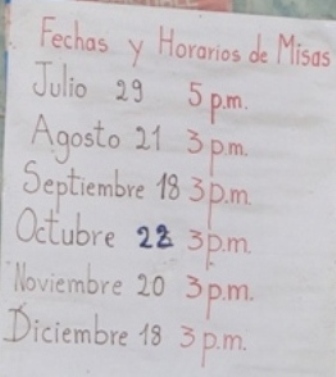 Fechas y Horarios de Misas
Julio 29 5 p.m.
Agosto 21 3 p.m.
Septiembre 18 3 p.m.
Octubre 22 3 p.m.
Noviembre 20 3 p.m.
Diciembre 18 3 p.m.